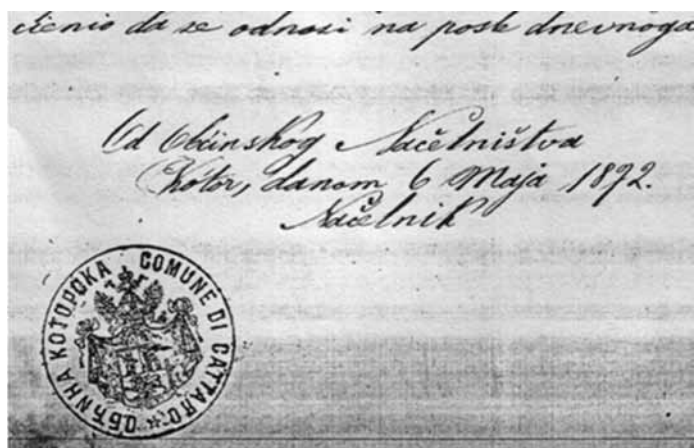 čenio da se odnosi na posle dnevnoga
Od Obćinskog Načelništva
Kotor, danom 6 Maja 1892.
Načelnik
ОБЋИНА КОТОРСКА COMUNE DI CATTARO